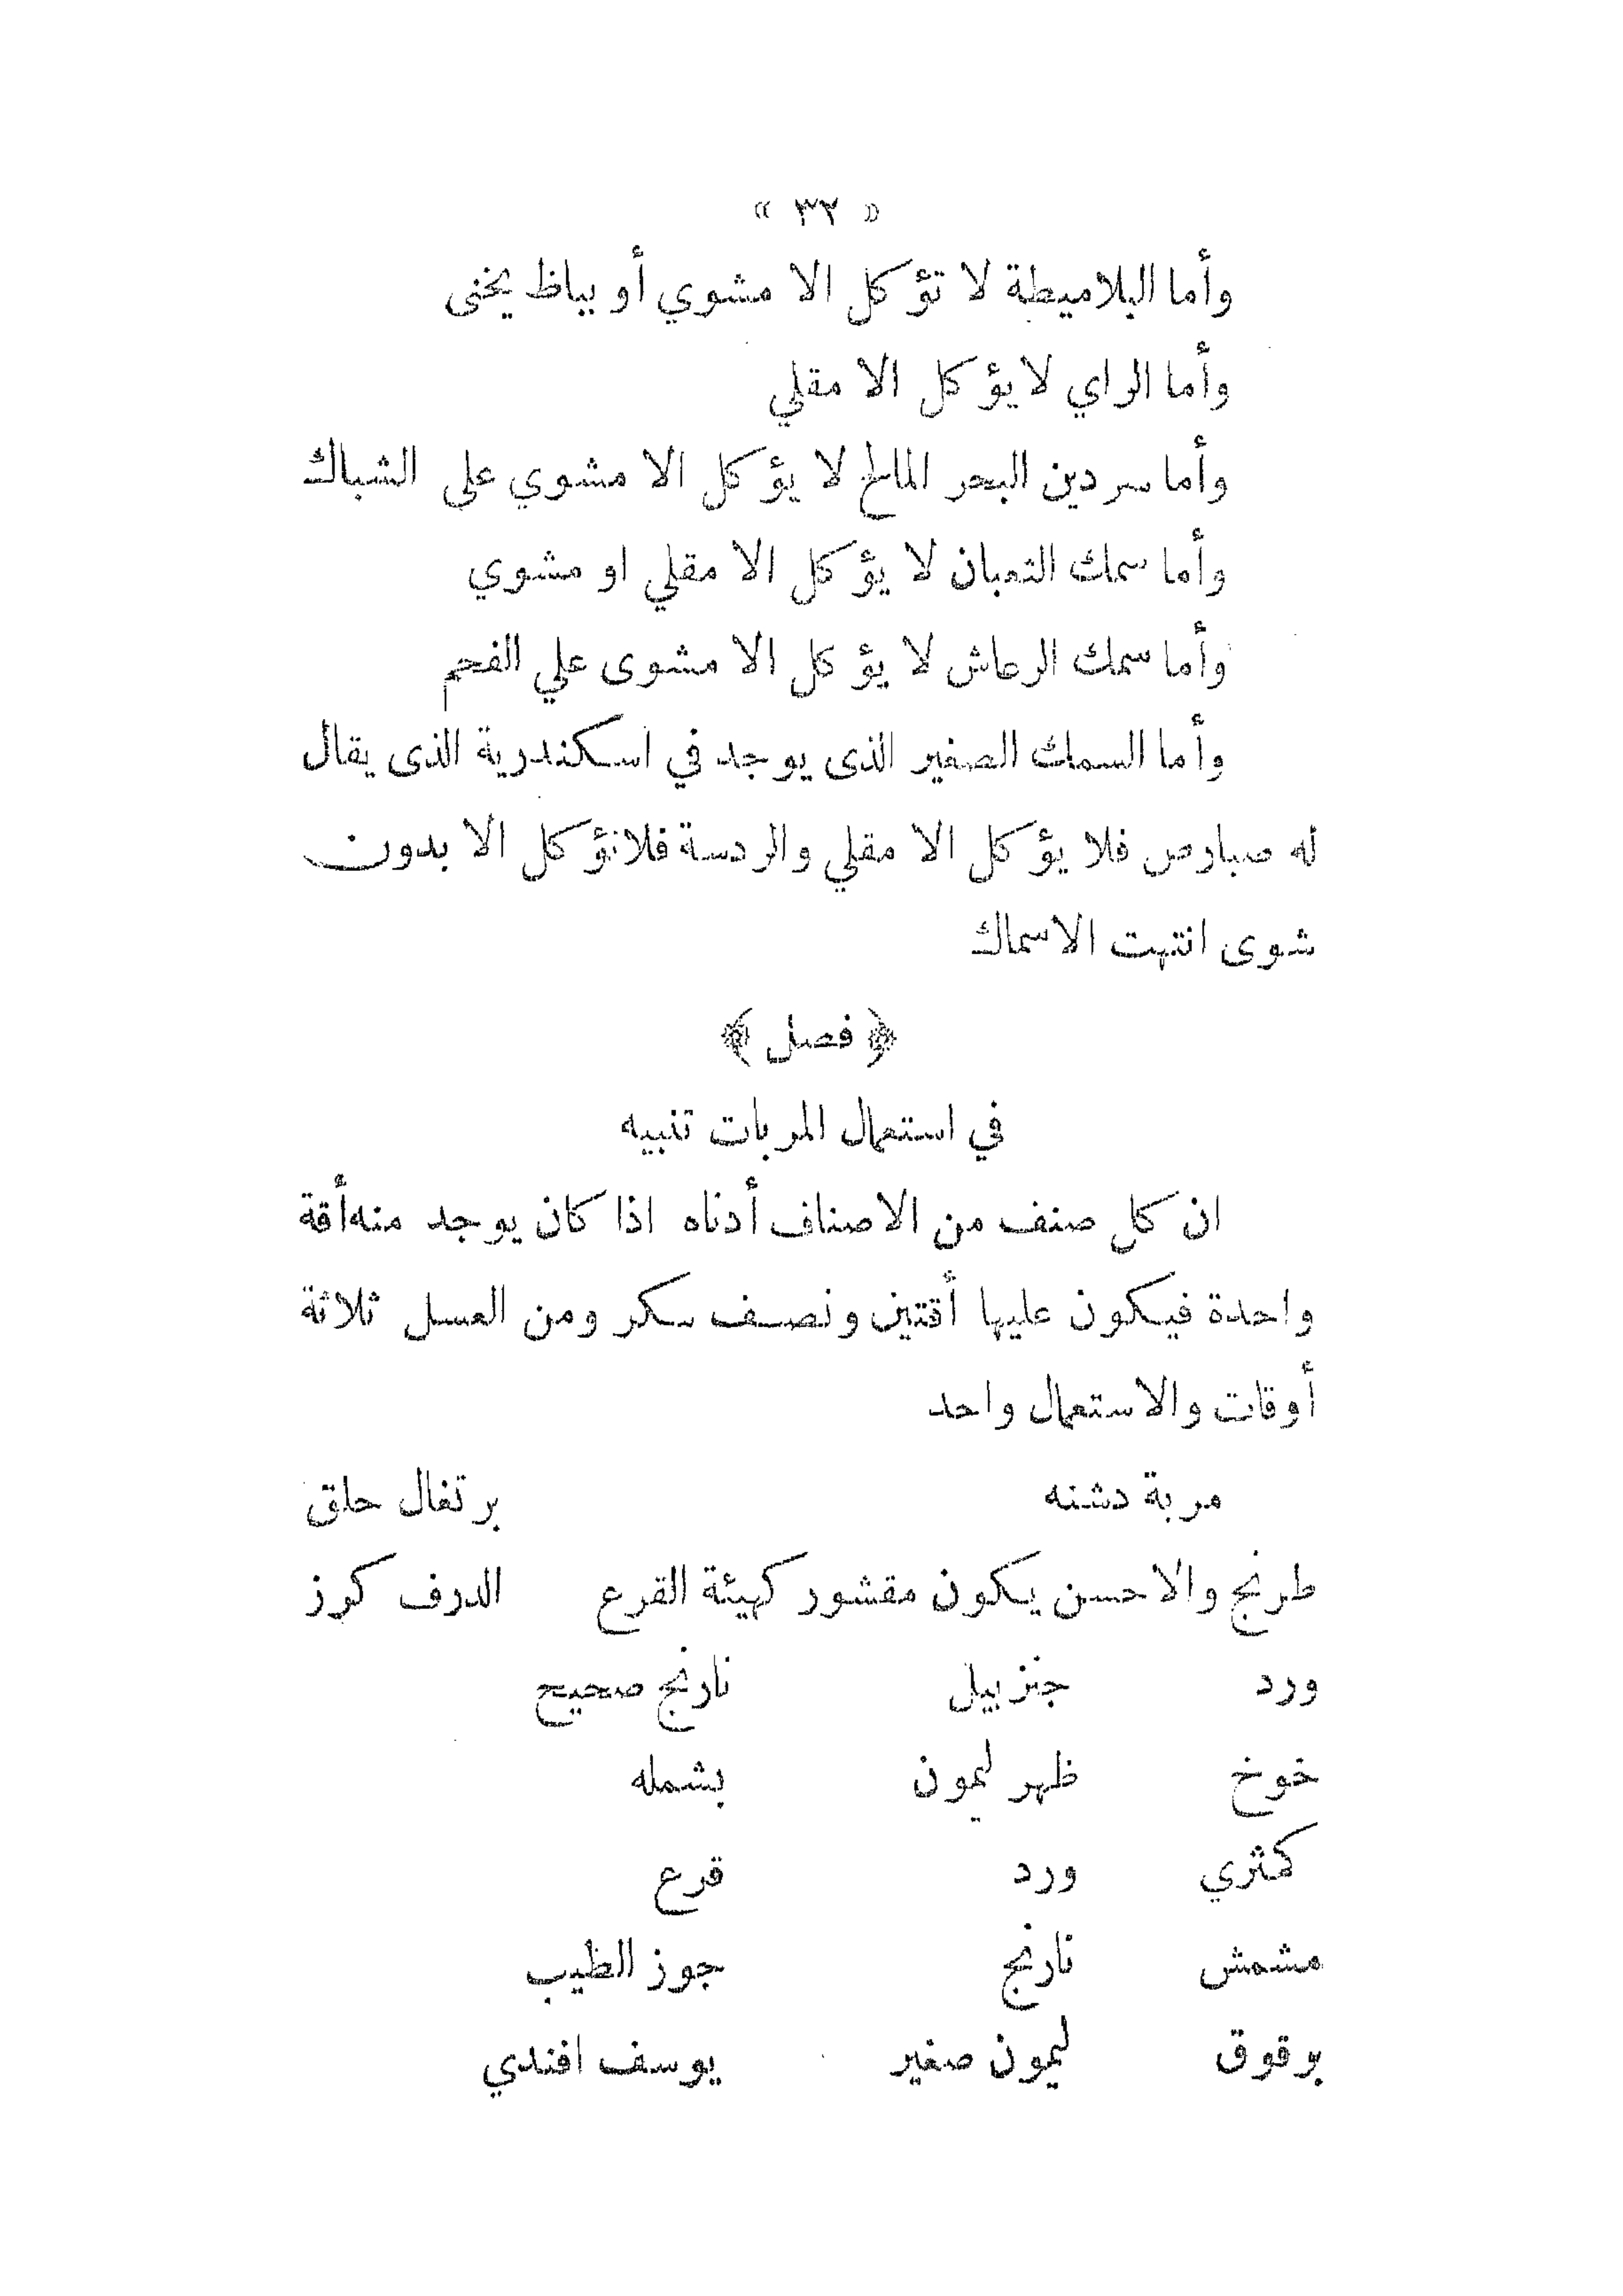 « ٣٢ »
وأما البلاميطة لا تؤكل الا مشوي أو بياظ يخنى
وأما الراي لا يؤكل الا مقلي
وأما سردين البحر المالح لا يؤكل الا مشوي على الشباك
وأما سمك الثعبان لا يؤكل الا مقلي او مشوي
وأما سمك الرعاش لا يؤكل الا مشوى علي الفحم
وأما السمك الصغير الذى يوجد في اسكندرية الذى يقال
له صبارص فلا يؤكل الا مقلي والردسة فلا تؤكل الا بدون
شوى انتهت الاسماك
﴿ فصل ﴾
في استعمال المربات تنبيه
ان كل صنف من الاصناف أدناه اذا كان يوجد منه أقة
واحدة فيكون عليها أقتين ونصف سكر ومن العسل ثلاثة
أوقات والاستعمال واحد
مربة دشنه برتغال حلق
طرنج والاحسن يكون مقشور كهيئة القرع الدرف كرز
ورد جنزبيل نارنج صحيح
خوخ ظهر ليمون بشمله
كمثري ورد قرع
مشمش نارنج جوز الطيب
برقوق ليمون صغير يوسف افندي